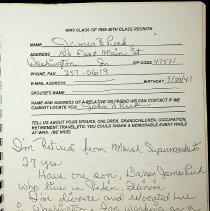 WHS CLASS OF 1959 45TH CLASS REUNION
NAME James E Peek
ADDRESS 106 East Main St
Washington In ZIP CODE 47501
PHONE, FAX 257-0619
E-MAIL BIRTHDAY 5/29/41
SPOUSE'S NAME
NAME AND ADDRESS OF A RELATIVE OR FRIEND WE CAN CONTACT IF WE
CANNOT LOCATE YOU John A Peek
TELL US ABOUT YOUR SPOUSE, CHILDREN, GRANDCHILDREN, OCCUPATION,
RETIREMENT, TRAVEL, ETC. YOU COULD SHARE A MEMORABLE EVENT WHILE
AT WHS. (BE NICE)
I'm Retired from Marsh Supermarkets
27 yrs
Have one son, James Peek
who lives in Pekin, Illinois
I'm divorce and relocated here
Washington. I'm working